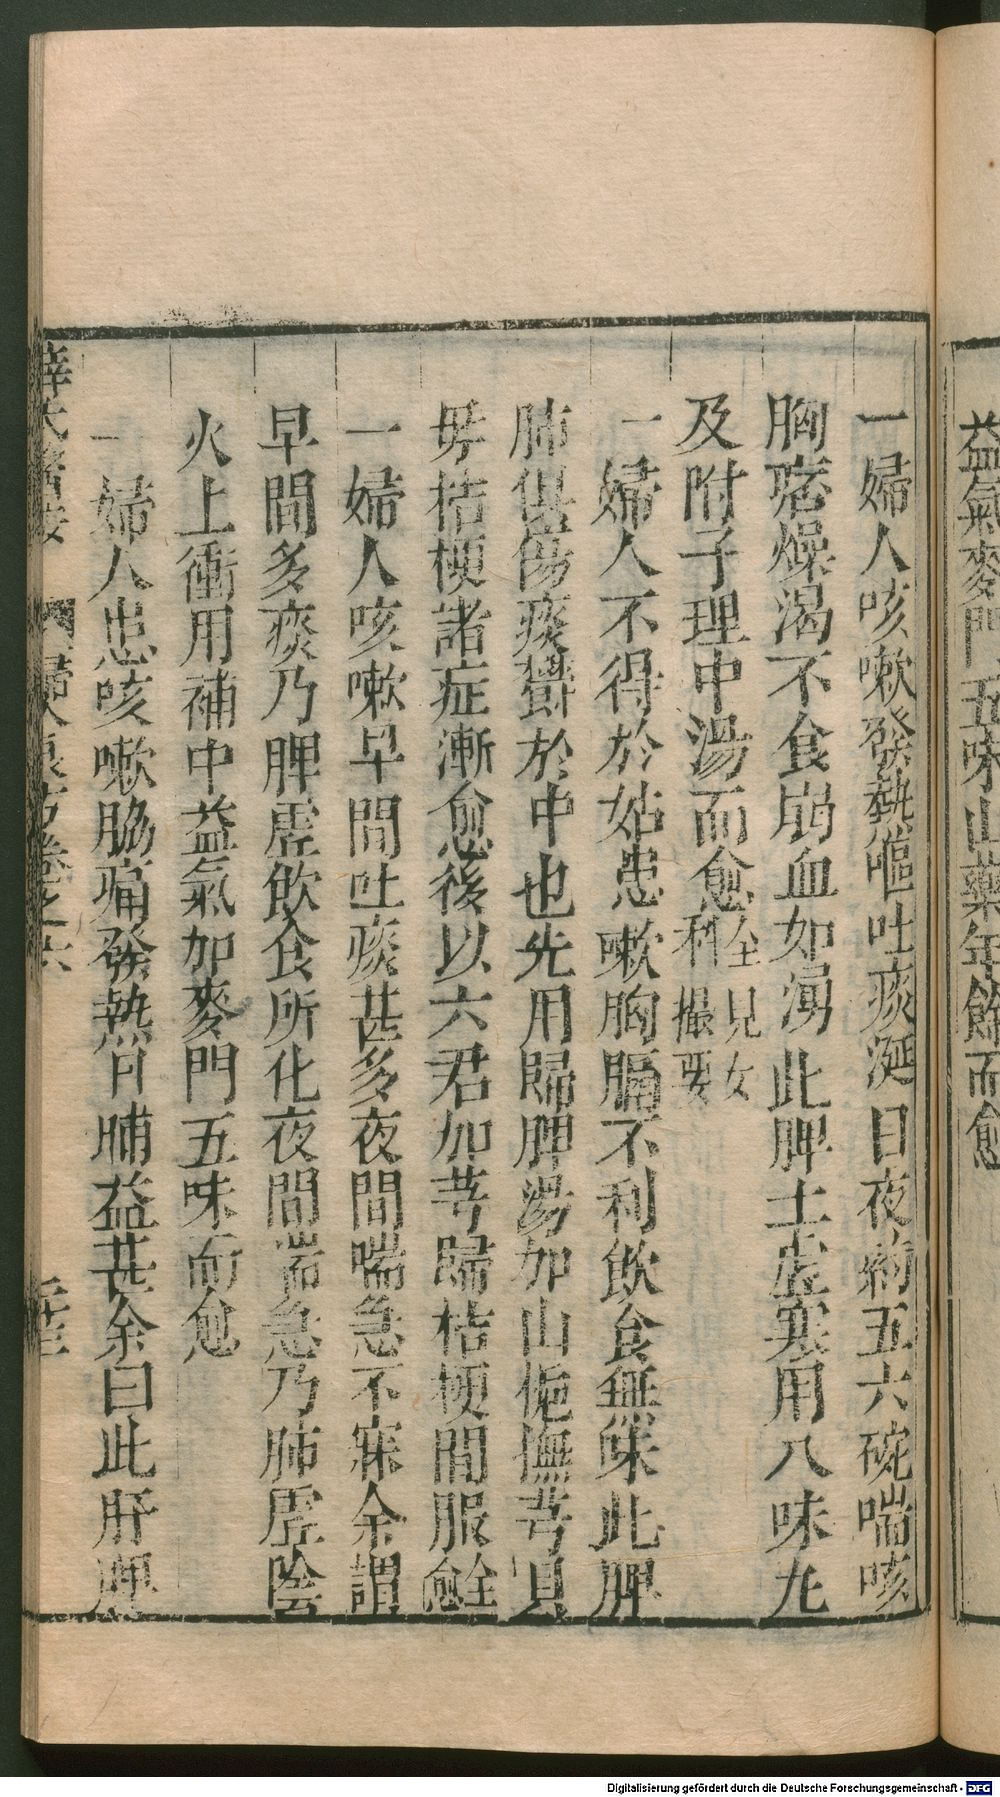 益氣麥門五味山藥年餘而愈
一婦人咳嗽發熱嘔吐痰涎日夜約五六碗喘咳
胸痞燥渴不食崩血如湧此脾土虛寒用八味丸
及附子理中湯而愈全見女
科撮要
一婦人不得於姑患嗽胸膈不利飲食無味此脾
肺俱傷痰欝於中也先用歸脾湯加山梔撫芎貝
母桔梗諸症漸愈後以六君加芎歸桔梗間服全愈
一婦人咳嗽早間吐痰甚多夜間喘急不寐余謂
早間多痰乃脾虛飲食所化夜間喘急乃肺虛陰
火上衝用補中益氣加麥門五味而愈
一婦人患咳嗽脇痛發熱日晡益甚余曰此肝脾
薛氏醫按 婦人良方卷之六
Digitalisierung gefördert durch die Deutsche Forschungsgemeinschaft - DFG